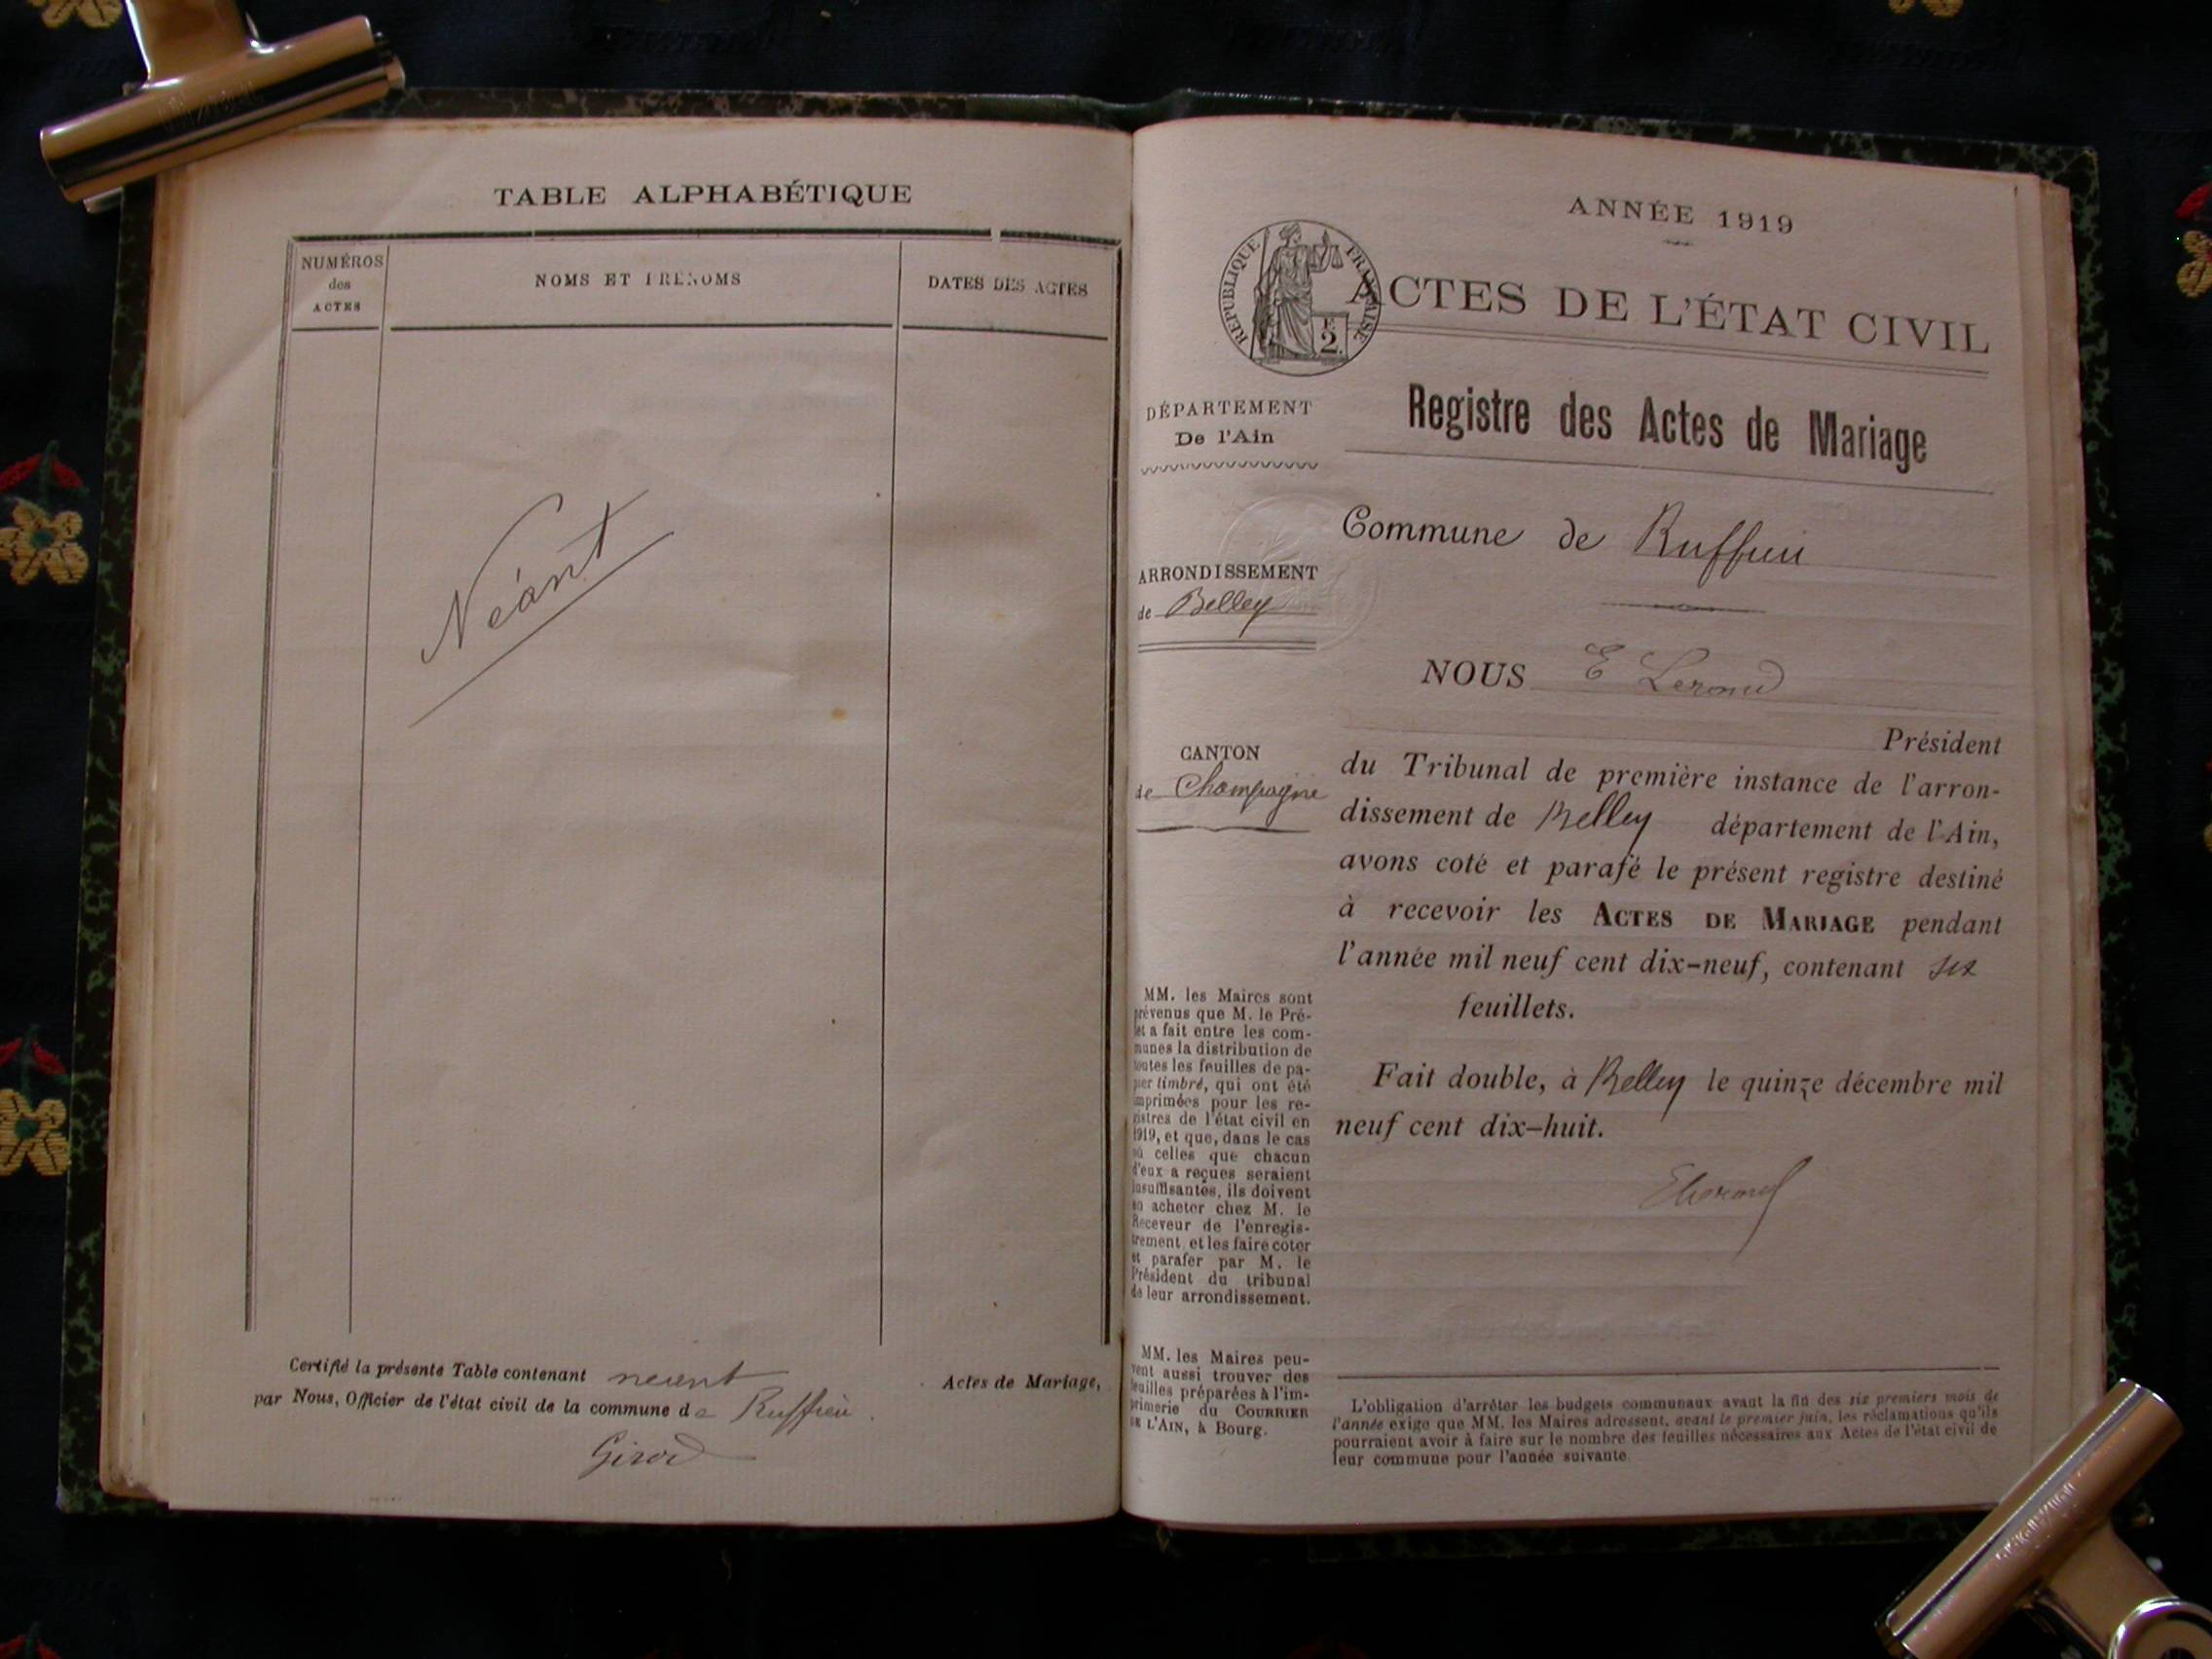 TABLE ALPHABÉTIQUE
NUMÉROS
des
ACTES
NOMS ET PRÉNOMS
DATES DES ACTES
Néant
Certifié la présente Table contenant neant Actes de Mariage,
par Nous, Officier de l'état civil de la commune de Ruffieu.
Girod
ANNÉE 1919
RÉPUBLIQUE FRANÇAISE
2
ACTES DE L'ÉTAT CIVIL
DÉPARTEMENT
De l'Ain
Registre des Actes de Mariage
ARRONDISSEMENT
de Belley
Commune de Ruffieu
NOUS E Leroud
CANTON
de Champagne
Président
du Tribunal de première instance de l'arron-
dissement de Belley département de l'Ain,
avons coté et parafé le présent registre destiné
à recevoir les ACTES DE MARIAGE pendant
l'année mil neuf cent dix-neuf, contenant six
feuillets.
Fait double, à Belley le quinze décembre mil
neuf cent dix-huit.
ELeroud
MM. les Maires sont
prévenus que M. le Pré-
fet a fait entre les com-
munes la distribution de
toutes les feuilles de pa-
pier timbré, qui ont été
imprimées pour les re-
gistres de l'état civil en
1919, et que, dans le cas
où celles que chacun
d'eux a reçues seraient
insuffisantes, ils doivent
en acheter chez M. le
Receveur de l'enregis-
trement et les faire coter
et parafer par M. le
Président du tribunal
de leur arrondissement.
MM. les Maires peu-
vent aussi trouver des
feuilles préparées à l'im-
primerie du COURRIER
DE L'AIN, à Bourg.
L'obligation d'arrêter les budgets communaux avant la fin des six premiers mois de
l'année exige que MM. les Maires adressent, avant le premier juin, les réclamations qu'ils
pourraient avoir à faire sur le nombre des feuilles nécessaires aux Actes de l'état civil de
leur commune pour l'année suivante.